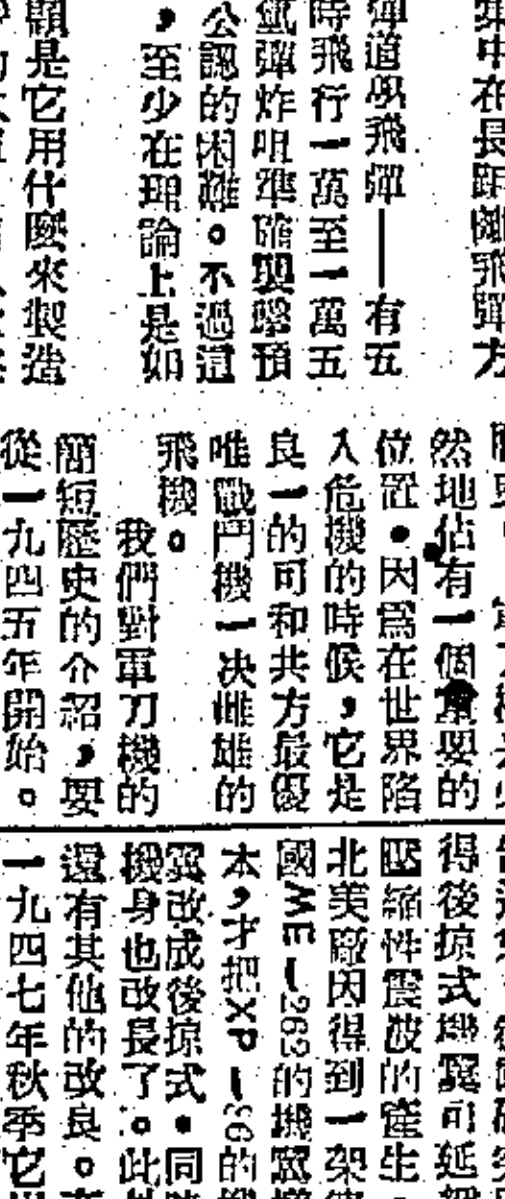 集中在長距離飛彈方
彈道學飛彈——有五
時飛行一萬至一萬五
氫彈炸咀準確與擊預
公認的困難。不過這
，至少在理論上是如
顯是它用什麼來製造
然地佔有一個重要的
位置。因爲在世界陷
入危機的時候，它是
良一的可和共方最優
唯戰鬥機一决雌雄的
飛機。
我們對軍刀機的
簡短歷史的介紹，要
從一九四五年開始。
得後掠式機翼可延
壓縮性震波的產生
北美廠因得到一架
國ME—262的機翼
本，才把XP—86的
翼改成後掠式。同
機身也改長了。此
還有其他的改良。
一九四七年秋季它